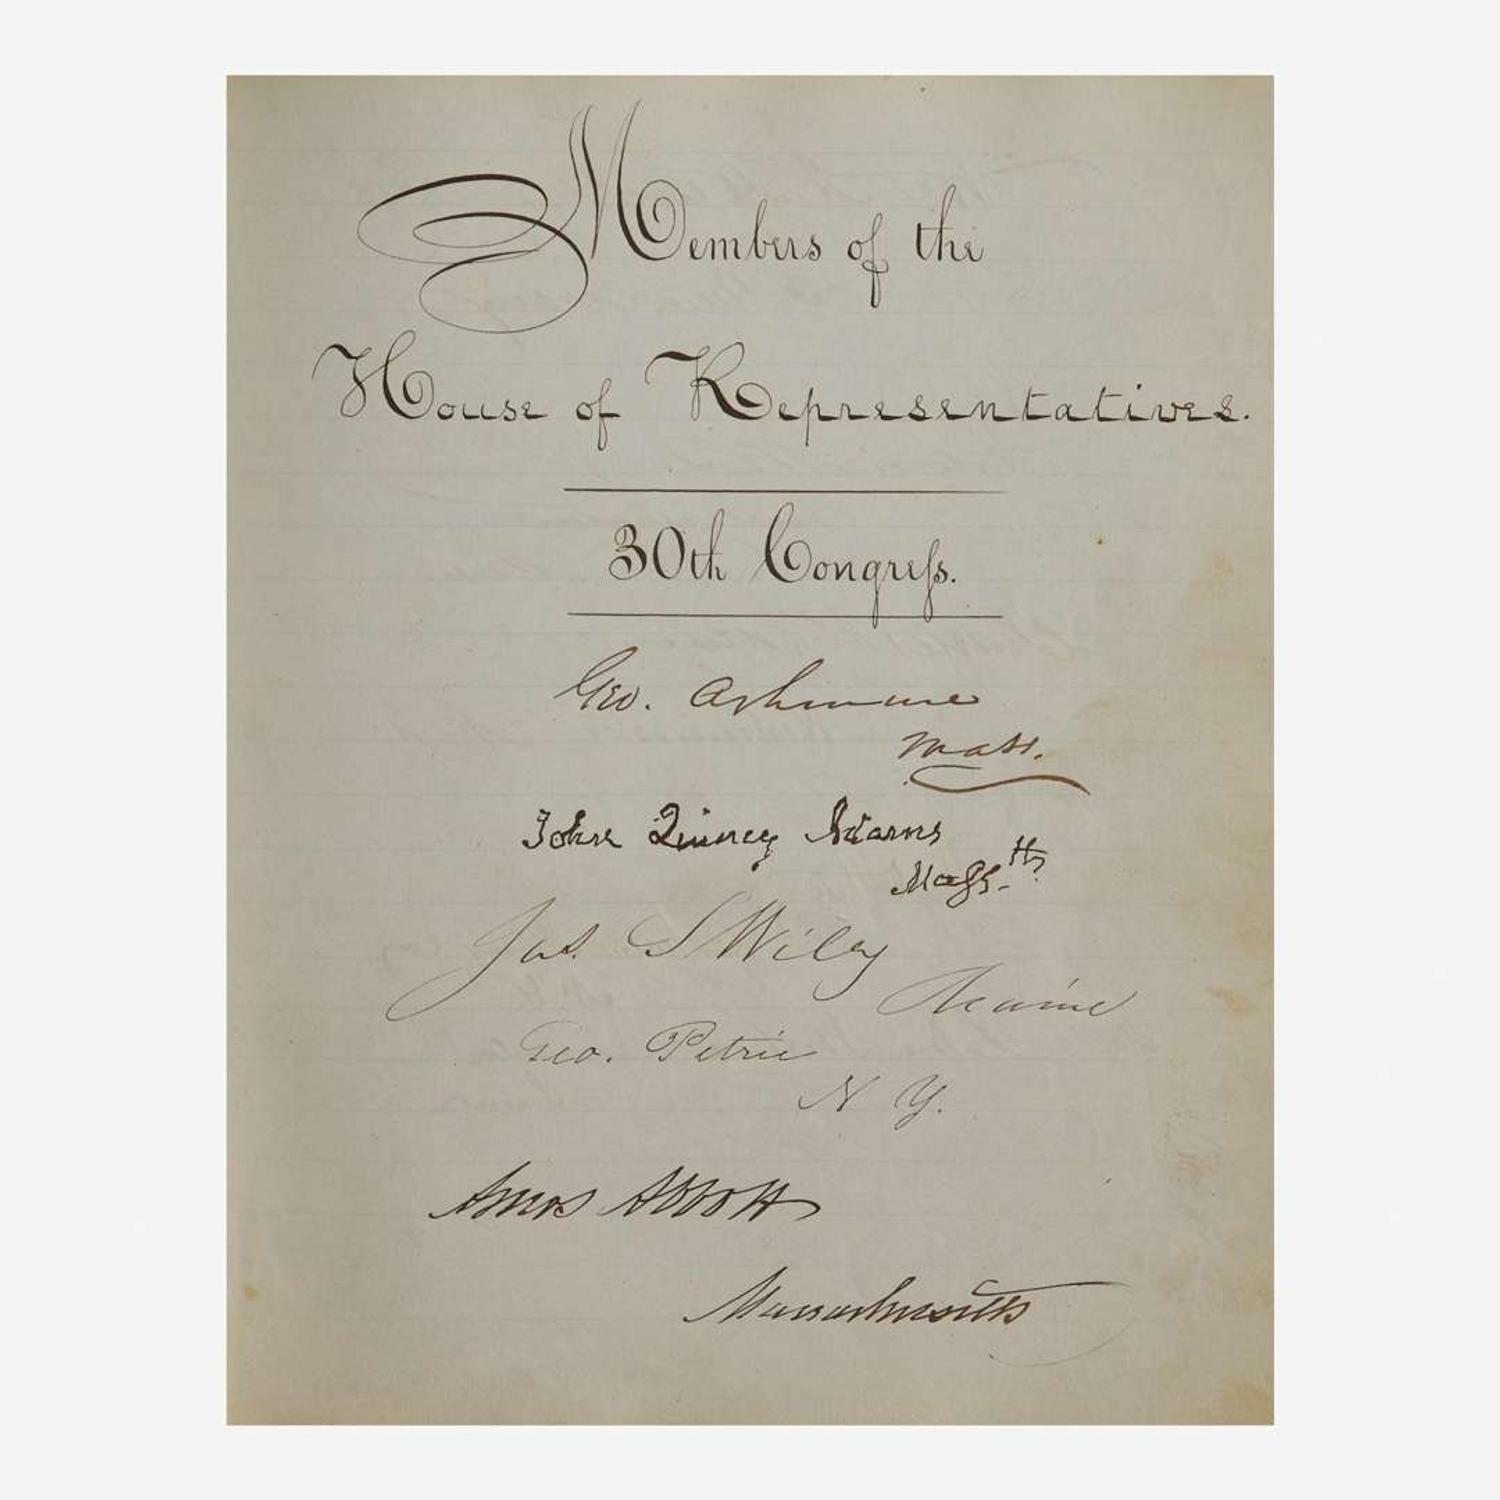 Members of the
House of Representatives.
30th Congreſs.
Geo. Ashmun
Mass.
John Quincy Adams
Maſs.tts
Jas. S Wiley
Maine
Geo. Petrie
N Y.
Amos Abbott
Massachusetts